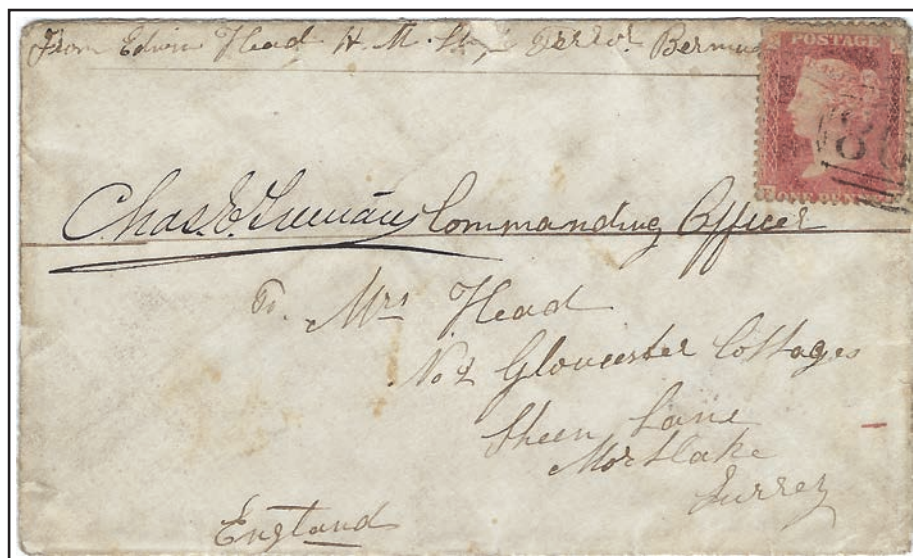 From Edwin Head H. M. Ship Terror Bermud
POSTAGE
Chas. E. Commanding Officer
To. Mrs Head
No 2 Gloucester Cottages
Sheen Lane
Mortlake
Surrey
England